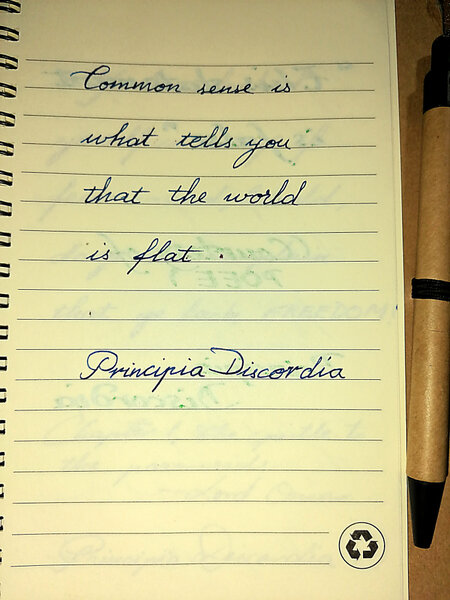 Common sense is
what tells you
that the world
is flat.
Principia Discordia